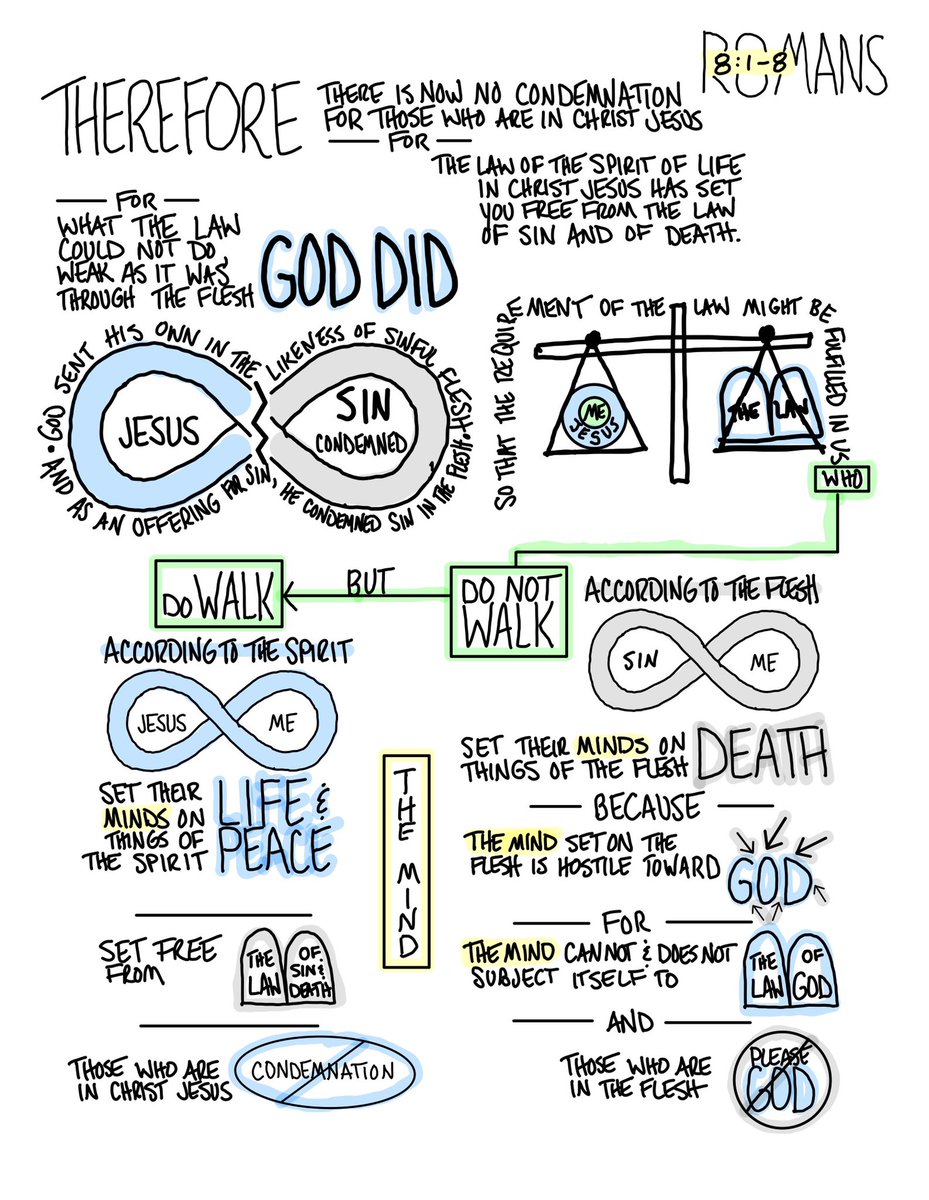 ROMANS
8:1-8
THEREFORE
THERE IS NOW NO CONDEMNATION
FOR THOSE WHO ARE IN CHRIST JESUS
FOR
THE LAW OF THE SPIRIT OF LIFE
IN CHRIST JESUS HAS SET
YOU FREE FROM THE LAW
OF SIN AND OF DEATH.
FOR
WHAT THE LAW
COULD NOT DO,
WEAK AS IT WAS
THROUGH THE FLESH
GOD DID
• GOD SENT HIS OWN IN THE LIKENESS OF SINFUL FLESH •
AND AS AN OFFERING FOR SIN, HE CONDEMNED SIN IN THE FLESH •
JESUS
SIN
CONDEMNED
SO THAT THE REQUIREMENT OF THE LAW MIGHT BE FULFILLED IN US
ME
JESUS
THE LAW
WHO
DO NOT
WALK
BUT
DO WALK
ACCORDING TO THE SPIRIT
JESUS
ME
SET THEIR
MINDS ON
THINGS OF
THE SPIRIT
LIFE &
PEACE
SET FREE
FROM
THE
LAW
OF
SIN &
DEATH
THOSE WHO ARE
IN CHRIST JESUS
CONDEMNATION
THE MIND
ACCORDING TO THE FLESH
SIN
ME
SET THEIR MINDS ON
THINGS OF THE FLESH
DEATH
BECAUSE
THE MIND SET ON THE
FLESH IS HOSTILE TOWARD
GOD
FOR
THE MIND CANNOT & DOES NOT
SUBJECT ITSELF TO
THE
LAW
OF
GOD
AND
THOSE WHO ARE
IN THE FLESH
PLEASE
GOD